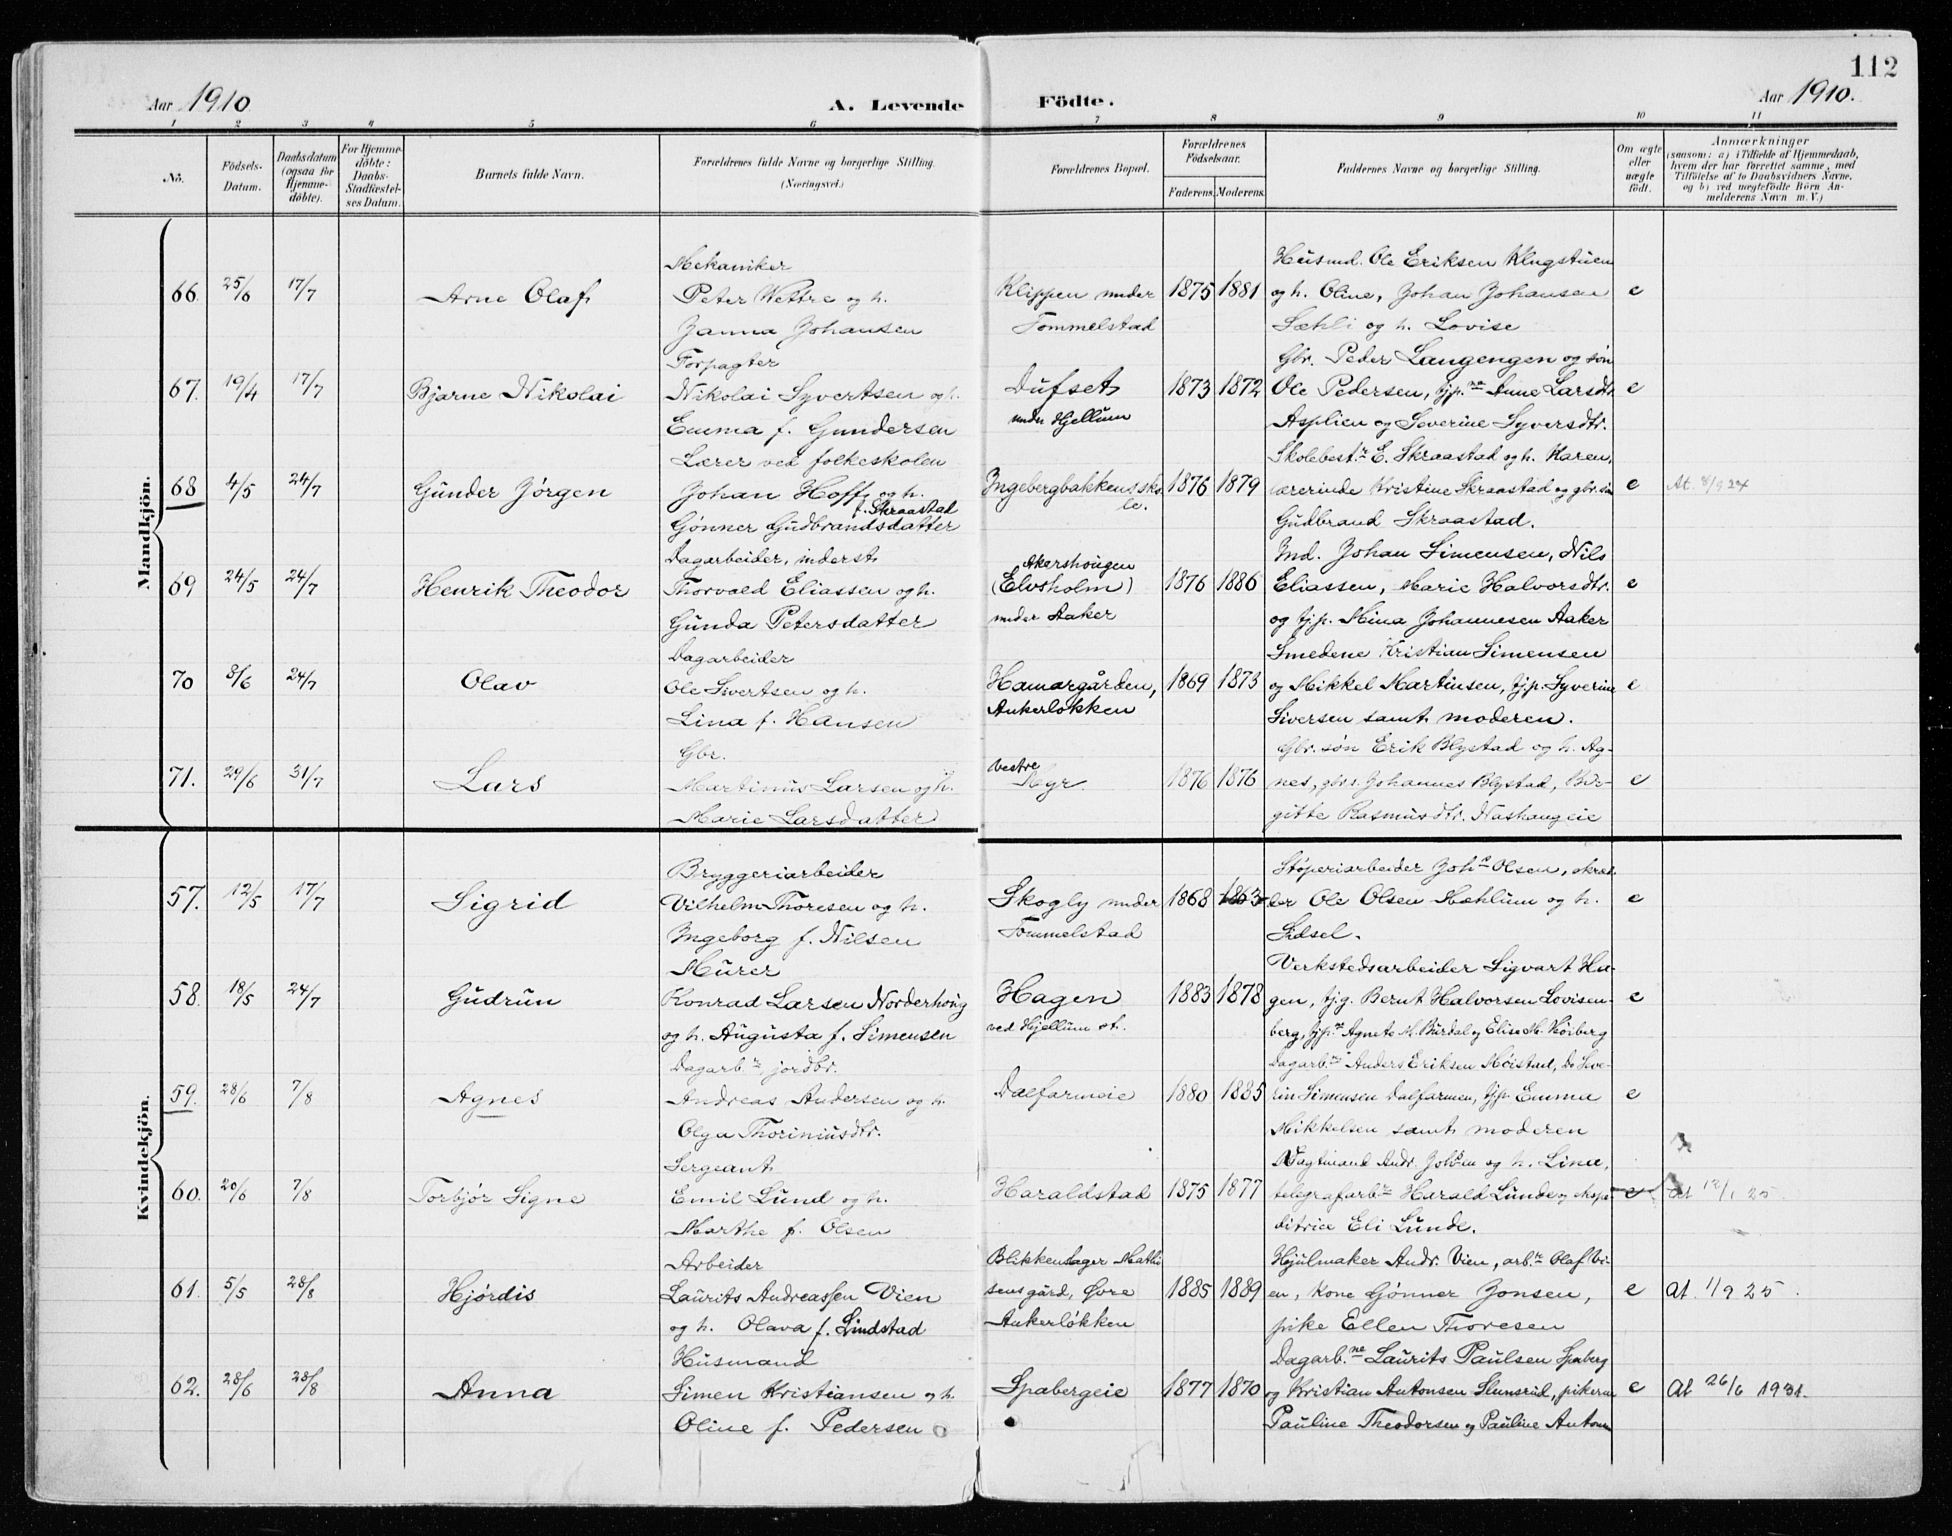 112
Aar 1910 A. Levende Födte. Aar 1910.
1 2 3 4 5 6 7 8 9 10 11
No.
Födsels-
Datum.
Daabsdatum
(ogsaa for
Hjemme-
döbte).
For Hjemme-
döbte:
Daabs-
Stadfæstel-
ses Datum.
Barnets fulde Navn.
Forældrenes fulde Navne og borgerlige Stilling.
(Næringsvei.)
Forældrenes Bopæl.
Forældrenes
Födselsaar.
Faderens. Moderens.
Faddernes Navne og borgerlige Stilling.
Om ægte
eller
uægte
födt.
Anmærkninger
(saasom: a) i Tilfælde af Hjemmedaab,
hvem der har forrettet samme, med
Tilföielse af to Daabsvidners Navne,
og b) ved uægtefödte Börn An-
melderens Navn m. V.)
Mandkjön.
66. 25/6 17/7
Arne Olaf
Mekaniker
Peter Wettre og h.
Janna Johansen
Klippen under
Tommelstad
1875 1881
Husmd. Ole Eriksen Klugstuen
og h. Oline, Johan Johansen
Sæhli og h. Lovise
e
67. 19/4 17/7
Bjarne Nikolai
Forpagter
Nikolai Syvertsen og h.
Emma f. Gundersen
Dufset
under Hjellum
1873 1872
Gbr. Peder Langengen og søn
Ole Pedersen, tjp.ne Anne Larsdtr.
Asplien og Severine Syversdtr.
e
68 4/5 24/7
Gunder Jørgen
Lærer ved folkeskolen
Johan Hoff og h.
f. Skraastad
Gønner Gudbrandsdatter
Ingebergbakkens sko-
le.
1876 1879
Skolebest.r E. Skraastad og h. Karen,
lærerinde Kristine Skraastad og gbr. søn
Gudbrand Skraastad.
e
At. 8/9 24
69 24/5 24/7
Henrik Theodor
Dagarbeider, inderst
Thorvald Eliassen og h.
Gunda Petersdatter
Akershougen
(Elvsholm)
under Aaker
1876 1886
Ind. Johan Simensen, Nils
Eliassen, Marie Halvorsdtr.
og tjp. Mina Johannesen Aaker
e
70 3/6 24/7
Olav
Dagarbeider
Ole Sivertsen og h.
Lina f. Hansen
Hamargården,
Ankerløkken
1869 1873
Smedene Kristian Simensen
og Mikkel Martinsen, tjp. Syverine
Siversen samt moderen.
e
71. 29/6 31/7
Lars
Gbr.
Martinus Larsen og h.
Marie Larsdatter
Vestre
Myr
1876 1876
Gbr. søn Erik Blystad og h. Ag-
nes, gbr.s. Johannes Blystad, Bir-
gitte Rasmusdtr. Nashaugeie
e
Kvindekjön.
57. 12/5 17/7
Sigrid
Bryggeriarbeider
Vilhelm Thoresen og h.
Ingeborg f. Nilsen
Skogly under
Tommelstad
1868 1863
Støperiarbeider Joh.s Olsen, skræd-
der Ole Olsen Mæhlum og h.
Sidsel.
e
58. 18/5 24/7
Gudrun
Murer
Konrad Larsen Norderhoug
og h. Augusta f. Simensen
Hagen
ved Hjellum st.
1883 1878
Verkstedsarbeider Sigvart Ha-
gen, tjg. Bernt Halvorsen Lovisen-
berg, tjp.ne Agnete M. Burdal og Elise M. Koiberg
e
59. 28/6 7/8
Agnes
Dagarb.r jordbr.
Andreas Andersen og h.
Olga Thoriniusdtr.
Dalfarmeie
1880 1885
Dagarb.ne Anders Eriksen Moistad, Do Seve-
rin Simensen Dalfarmen, tjp. Emma
Mikkelsen samt moderen
e
60. 20/6 7/8
Torbjør Signe
Sergeant
Emil Lund og h.
Marthe f. Olsen
Haraldstad
1875 1877
Vagtmand Andr. og h. Lina,
telegrafarb.r Harald Lunde og expe-
ditrice Eli Lunde.
e
At 12/1 25
61. 5/5 28/8
Hjørdis
Arbeider
Laurits Andreassen Vien
og h. Olava f. Lindstad
Blikkenslager Mathi-
sensgård, Øvre
Ankerløkken
1885 1889
Hjulmaker Andr. Vien, arb.r Olaf Vi-
en, kone Gønner Jonsen,
pike Ellen Thoresen
e
At. 1/9 25.
62. 28/6 28/8
Anna
Husmand
Simen Kristiansen og h.
Oline f. Pedersen
Spabergeie
1877 1870
Dagarb.ne Laurits Paulsen Spaberg
og Kristian Antonsen Slunsrud, pikerne
Pauline Theodorsen og Pauline Antons
e
At 26/6 1931.